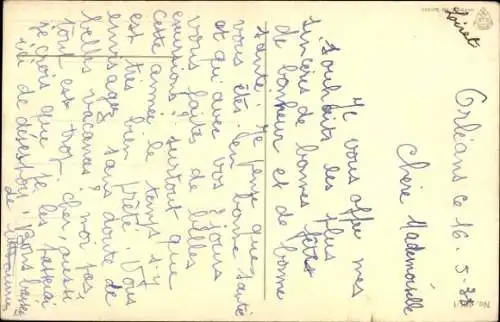 Loiret
Orléans ce 16-5-38
Chère Mademoiselle
Je vous offre mes
souhaits les plus
sincères de bonnes fêtes
de bonheur et de bonne
santé. Je pense que
vous êtes en bonne santé
et qui avec vos
vous faites de belles
excursions? surtout que
cette année le temps s'y
est très bien prêté. Vous
envisagez sans doute de
belles vacances? moi pas,
tout est trop cher, aussi
je crois que je les passerai
No.